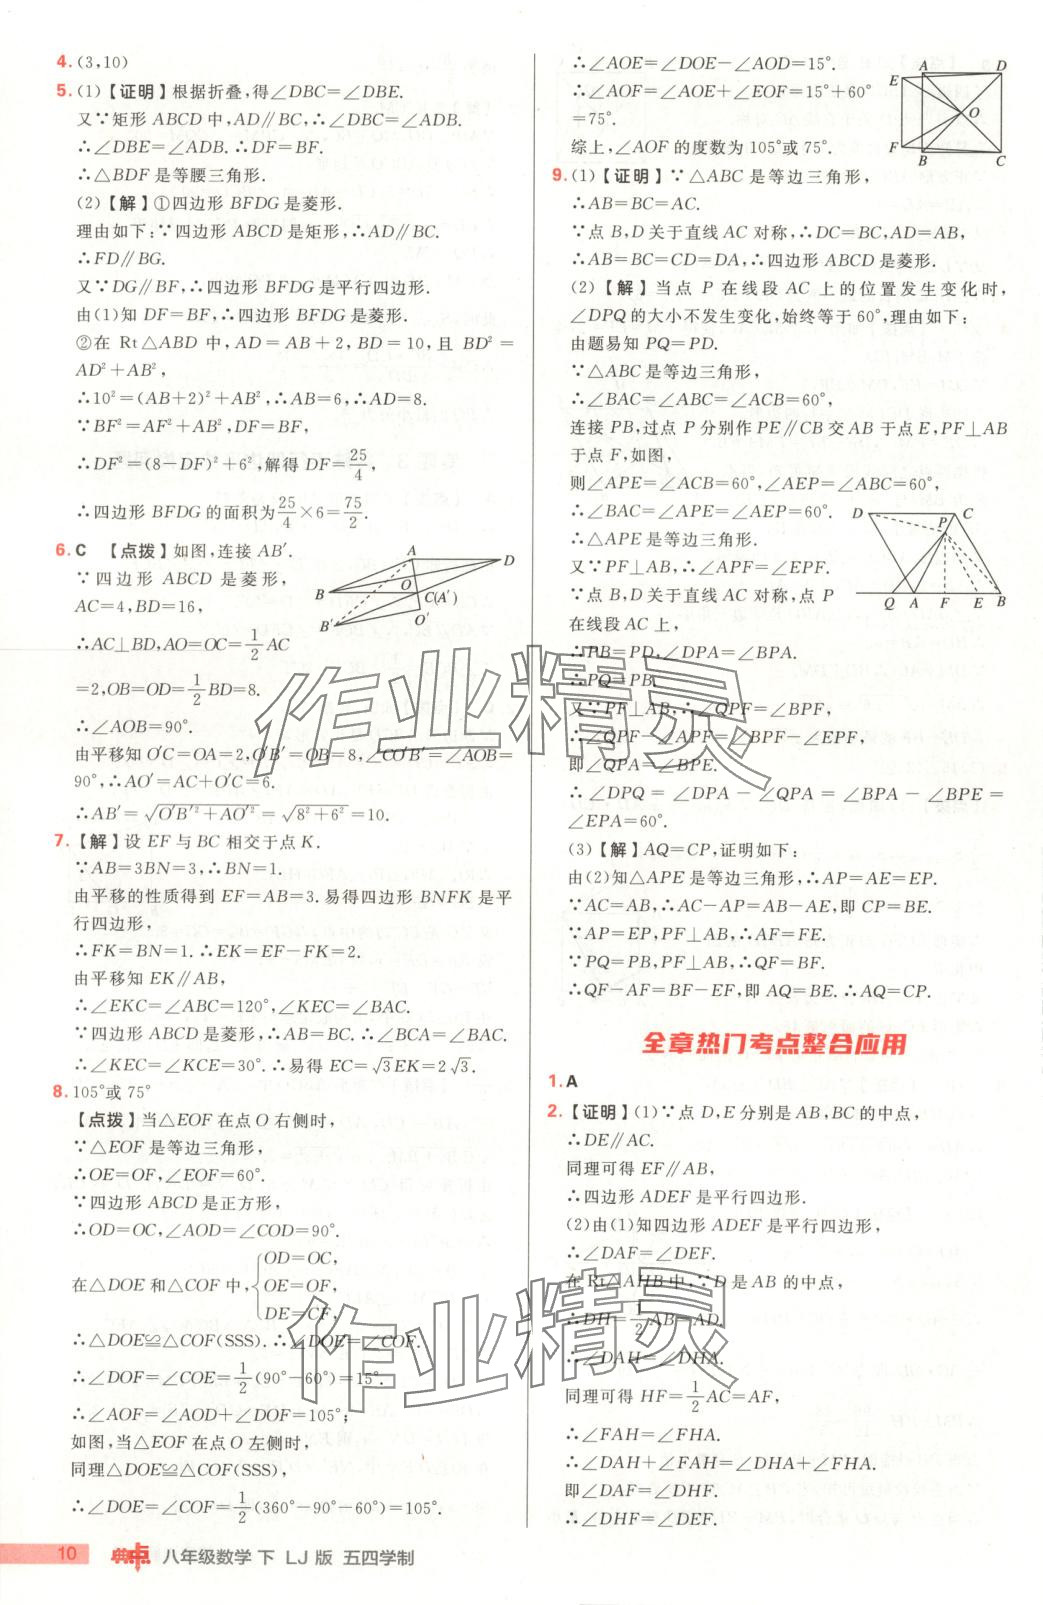 4. (3,10)
5. (1)【证明】根据折叠,得∠DBC=∠DBE.
又∵矩形 ABCD 中,AD∥BC,∴∠DBC=∠ADB.
∴∠DBE=∠ADB. ∴DF=BF.
∴△BDF 是等腰三角形.
(2)【解】①四边形 BFDG 是菱形.
理由如下:∵四边形 ABCD 是矩形,∴AD∥BC.
∴FD∥BG.
又∵DG∥BF,∴四边形 BFDG 是平行四边形.
由(1)知 DF=BF,∴四边形 BFDG 是菱形.
②在 Rt△ABD 中,AD=AB+2,BD=10,且 BD²=
AD²+AB²,
∴10²=(AB+2)²+AB²,∴AB=6,∴AD=8.
∵BF²=AF²+AB²,DF=BF,
∴DF²=(8-DF)²+6²,解得 DF=25/4,
∴四边形 BFDG 的面积为25/4×6=75/2.
6. C 【点拨】如图,连接 AB′.
∵四边形 ABCD 是菱形,
AC=4,BD=16,
∴AC⊥BD,AO=OC=1/2AC
=2,OB=OD=1/2BD=8.
∴∠AOB=90°.
由平移知 O′C=OA=2,O′B′=OB=8,∠CO′B′=∠AOB=
90°,∴AO′=AC+O′C=6.
∴AB′=√(O′B′²+AO′²)=√(8²+6²)=10.
A
D
B
O
C(A′)
B′
O′
7.【解】设 EF 与 BC 相交于点 K.
∵AB=3BN=3,∴BN=1.
由平移的性质得到 EF=AB=3. 易得四边形 BNFK 是平
行四边形,
∴FK=BN=1. ∴EK=EF-FK=2.
由平移知 EK∥AB,
∴∠EKC=∠ABC=120°,∠KEC=∠BAC.
∵四边形 ABCD 是菱形,∴AB=BC. ∴∠BCA=∠BAC.
∴∠KEC=∠KCE=30°. ∴易得 EC=√3EK=2√3.
8. 105°或 75°
【点拨】当△EOF 在点 O 右侧时,
∵△EOF 是等边三角形,
∴OE=OF,∠EOF=60°.
∵四边形 ABCD 是正方形,
∴OD=OC,∠AOD=∠COD=90°.
在△DOE 和△COF 中,{OD=OC,
OE=OF,
DE=CF,
∴△DOE≌△COF(SSS). ∴∠DOE=∠COF.
∴∠DOF=∠COE=1/2(90°-60°)=15°.
∴∠AOF=∠AOD+∠DOF=105°;
如图,当△EOF 在点 O 左侧时,
同理△DOE≌△COF(SSS),
∴∠DOE=∠COF=1/2(360°-90°-60°)=105°.
∴∠AOE=∠DOE-∠AOD=15°.
∴∠AOF=∠AOE+∠EOF=15°+60°
=75°.
综上,∠AOF 的度数为 105°或 75°.
A
D
E
O
F
B
C
9. (1)【证明】∵△ABC 是等边三角形,
∴AB=BC=AC.
∵点 B,D 关于直线 AC 对称,∴DC=BC,AD=AB,
∴AB=BC=CD=DA,∴四边形 ABCD 是菱形.
(2)【解】当点 P 在线段 AC 上的位置发生变化时,
∠DPQ 的大小不发生变化,始终等于 60°,理由如下:
由题易知 PQ=PD.
∵△ABC 是等边三角形,
∴∠BAC=∠ABC=∠ACB=60°,
连接 PB,过点 P 分别作 PE∥CB 交 AB 于点 E,PF⊥AB
于点 F,如图,
则∠APE=∠ACB=60°,∠AEP=∠ABC=60°,
∴∠BAC=∠APE=∠AEP=60°.
∴△APE 是等边三角形.
又∵PF⊥AB,∴∠APF=∠EPF.
∵点 B,D 关于直线 AC 对称,点 P
在线段 AC 上,
∴PB=PD,∠DPA=∠BPA.
∴PQ=PB.
又∵PF⊥AB,∴∠QPF=∠BPF,
∴∠QPF-∠APF=∠BPF-∠EPF,
即∠QPA=∠BPE.
∴∠DPQ=∠DPA-∠QPA=∠BPA-∠BPE=
∠EPA=60°.
D
C
P
Q
A
F
E
B
(3)【解】AQ=CP,证明如下:
由(2)知△APE 是等边三角形,∴AP=AE=EP.
∵AC=AB,∴AC-AP=AB-AE,即 CP=BE.
∵AP=EP,PF⊥AB,∴AF=FE.
∵PQ=PB,PF⊥AB,∴QF=BF.
∴QF-AF=BF-EF,即 AQ=BE. ∴AQ=CP.
全章热门考点整合应用
1. A
2.【证明】(1)∵点 D,E 分别是 AB,BC 的中点,
∴DE∥AC.
同理可得 EF∥AB,
∴四边形 ADEF 是平行四边形.
(2)由(1)知四边形 ADEF 是平行四边形,
∴∠DAF=∠DEF.
在 Rt△AHB 中,∵D 是 AB 的中点,
∴DH=1/2AB=AD,
∴∠DAH=∠DHA.
同理可得 HF=1/2AC=AF,
∴∠FAH=∠FHA.
∴∠DAH+∠FAH=∠DHA+∠FHA.
即∠DAF=∠DHF.
∴∠DHF=∠DEF.
作业精灵
作业精灵
10 典中点 八年级数学 下 LJ 版 五四学制